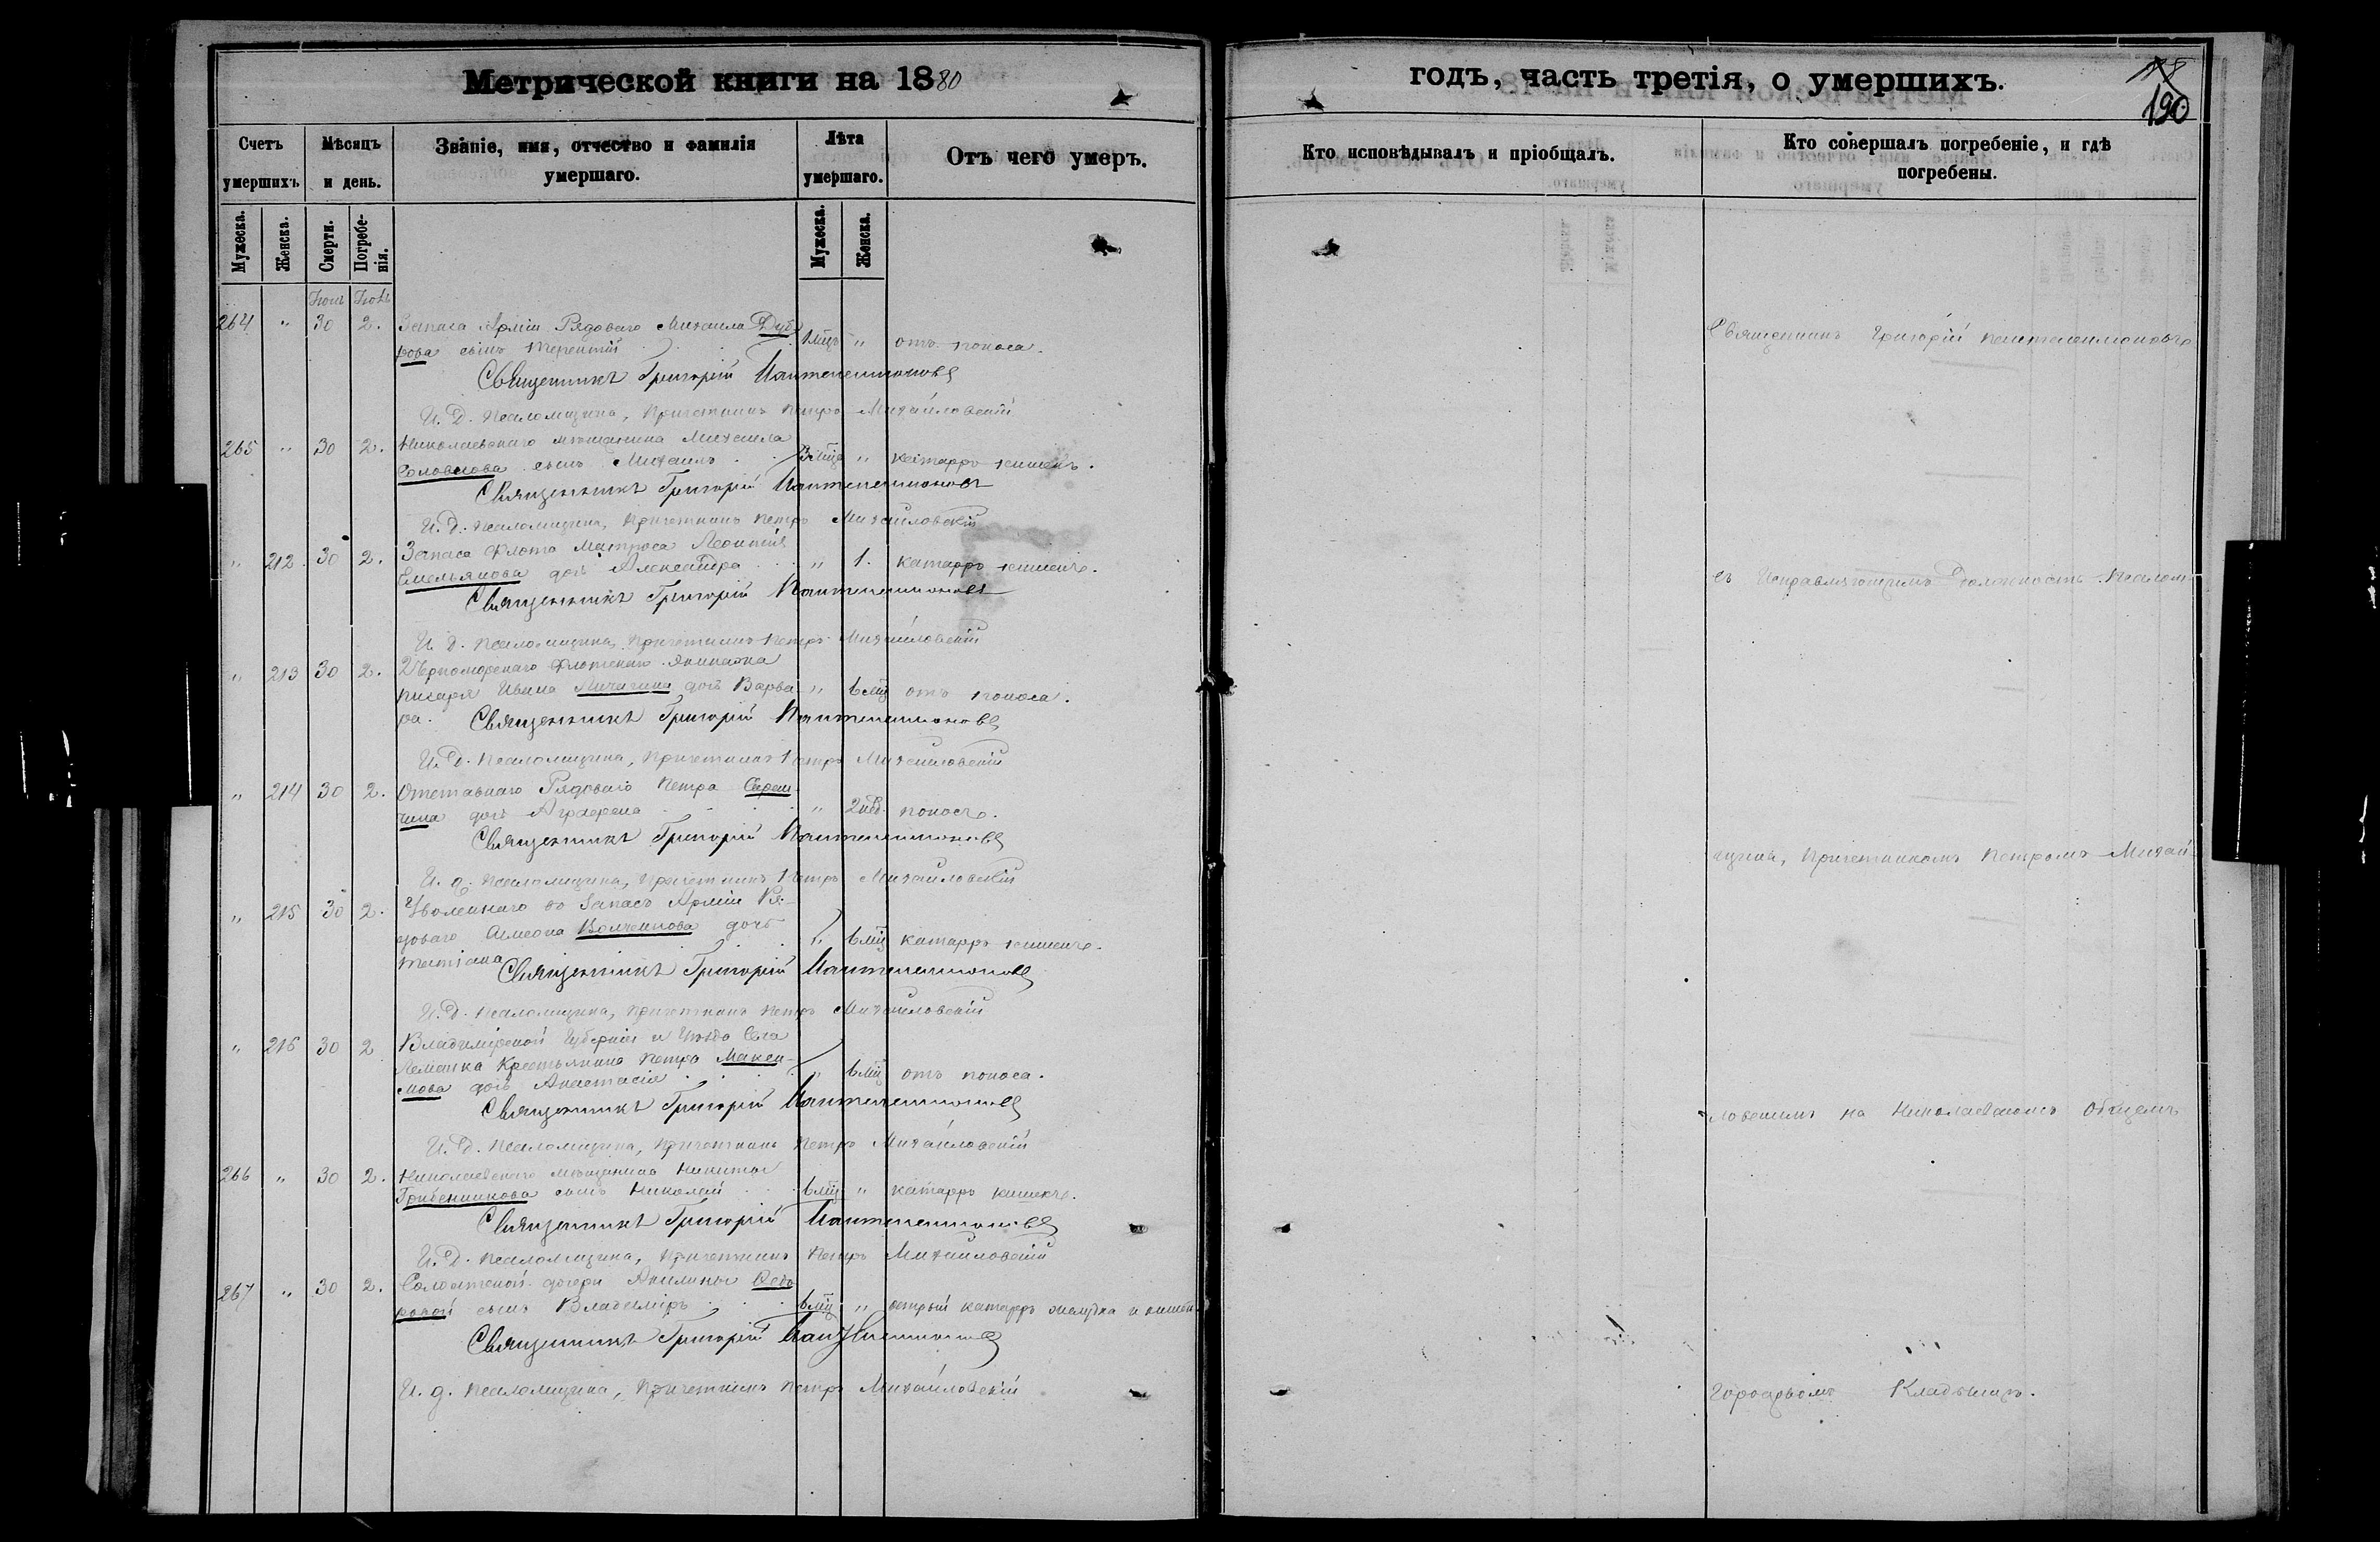 Метрической книги на 1880
годъ, часть третія, о умершихъ.
178
190
Счетъ умершихъ
Мѣсяцъ и день.
Званіе, имя, отчество и фамилія умершаго.
Лѣта умершаго.
Отъ чего умеръ.
Кто исповѣдывалъ и пріобщалъ.
Кто совершалъ погребеніе, и гдѣ погребены.
Мужеска.
Женска.
Смерти.
Погребенія.
Мужеска.
Женска.
264 " 30 2. Запаса Арміи Рядоваго Михаила
сынъ Терентій " отъ поноса.
Священникъ Григорій Пантелеимоновъ
И. Д. Псаломщика, Причетникъ Петръ Михайловскій
265 " 30 2. Николаевскаго мѣщанина Михаила
сынъ Михаилъ 3 мца " катарръ кишекъ.
Священникъ Григорій Пантелеимоновъ
И. Д. Псаломщика, Причетникъ Петръ Михайловскій
" 212. 30 2. Запаса флота Матроса Леонтія
Емельянова дочь Александра " 1. катарръ кишекъ.
Священникъ Григорій Пантелеимоновъ
И. Д. Псаломщика, Причетникъ Петръ Михайловскій
" 213 30 2. Черноморскаго флотскаго экипажа
писаря Ивана Мичигина дочь Варва- " 6 мц отъ поноса.
ра. Священникъ Григорій Пантелеимоновъ
И. Д. Псаломщика, Причетникъ Петръ Михайловскій
" 214 30 2. Отставнаго Рядоваго Петра
дочь Аграфена " 2 нед. поносъ.
Священникъ Григорій Пантелеимоновъ
И. д. Псаломщика, Причетникъ Петръ Михайловскій
" 215 30 2. Уволеннаго въ Запасъ Арміи Ря-
доваго дочь " 6 мц катарръ кишекъ.
Татіана Священникъ Григорій Пантелеимоновъ
И. Д. Псаломщика, Причетникъ Петръ Михайловскій
" 216 30 2 Владимірской Губерніи и Уѣзда Села
Крестьянина Петра Макси-
мова дочь Анастасія " 6 мц отъ поноса.
Священникъ Григорій Пантелеимоновъ
И. Д. Псаломщика, Причетникъ Петръ Михайловскій
266 " 30 2. Николаевскаго мѣщанина Никиты
Гребенникова сынъ Николай 6 мц " катарръ кишекъ.
Священникъ Григорій Пантелеимоновъ
И. Д. Псаломщика, Причетникъ Петръ Михайловскій
267 " 30 2. Солдатской дочери Акилины Ѳедо-
ровой сынъ Владиміръ 6 мц " острый катарръ желудка и кишекъ
Священникъ Григорій Пантелеимоновъ
И. д. Псаломщика, Причетникъ Петръ Михайловскій
Священникъ Григорій Пантелеимоновъ
съ Исправляющимъ Должность Псалом-
щика, Причетникомъ Петромъ Михай-
ловскимъ на Николаевскомъ Общемъ
Городскомъ Кладбищѣ.